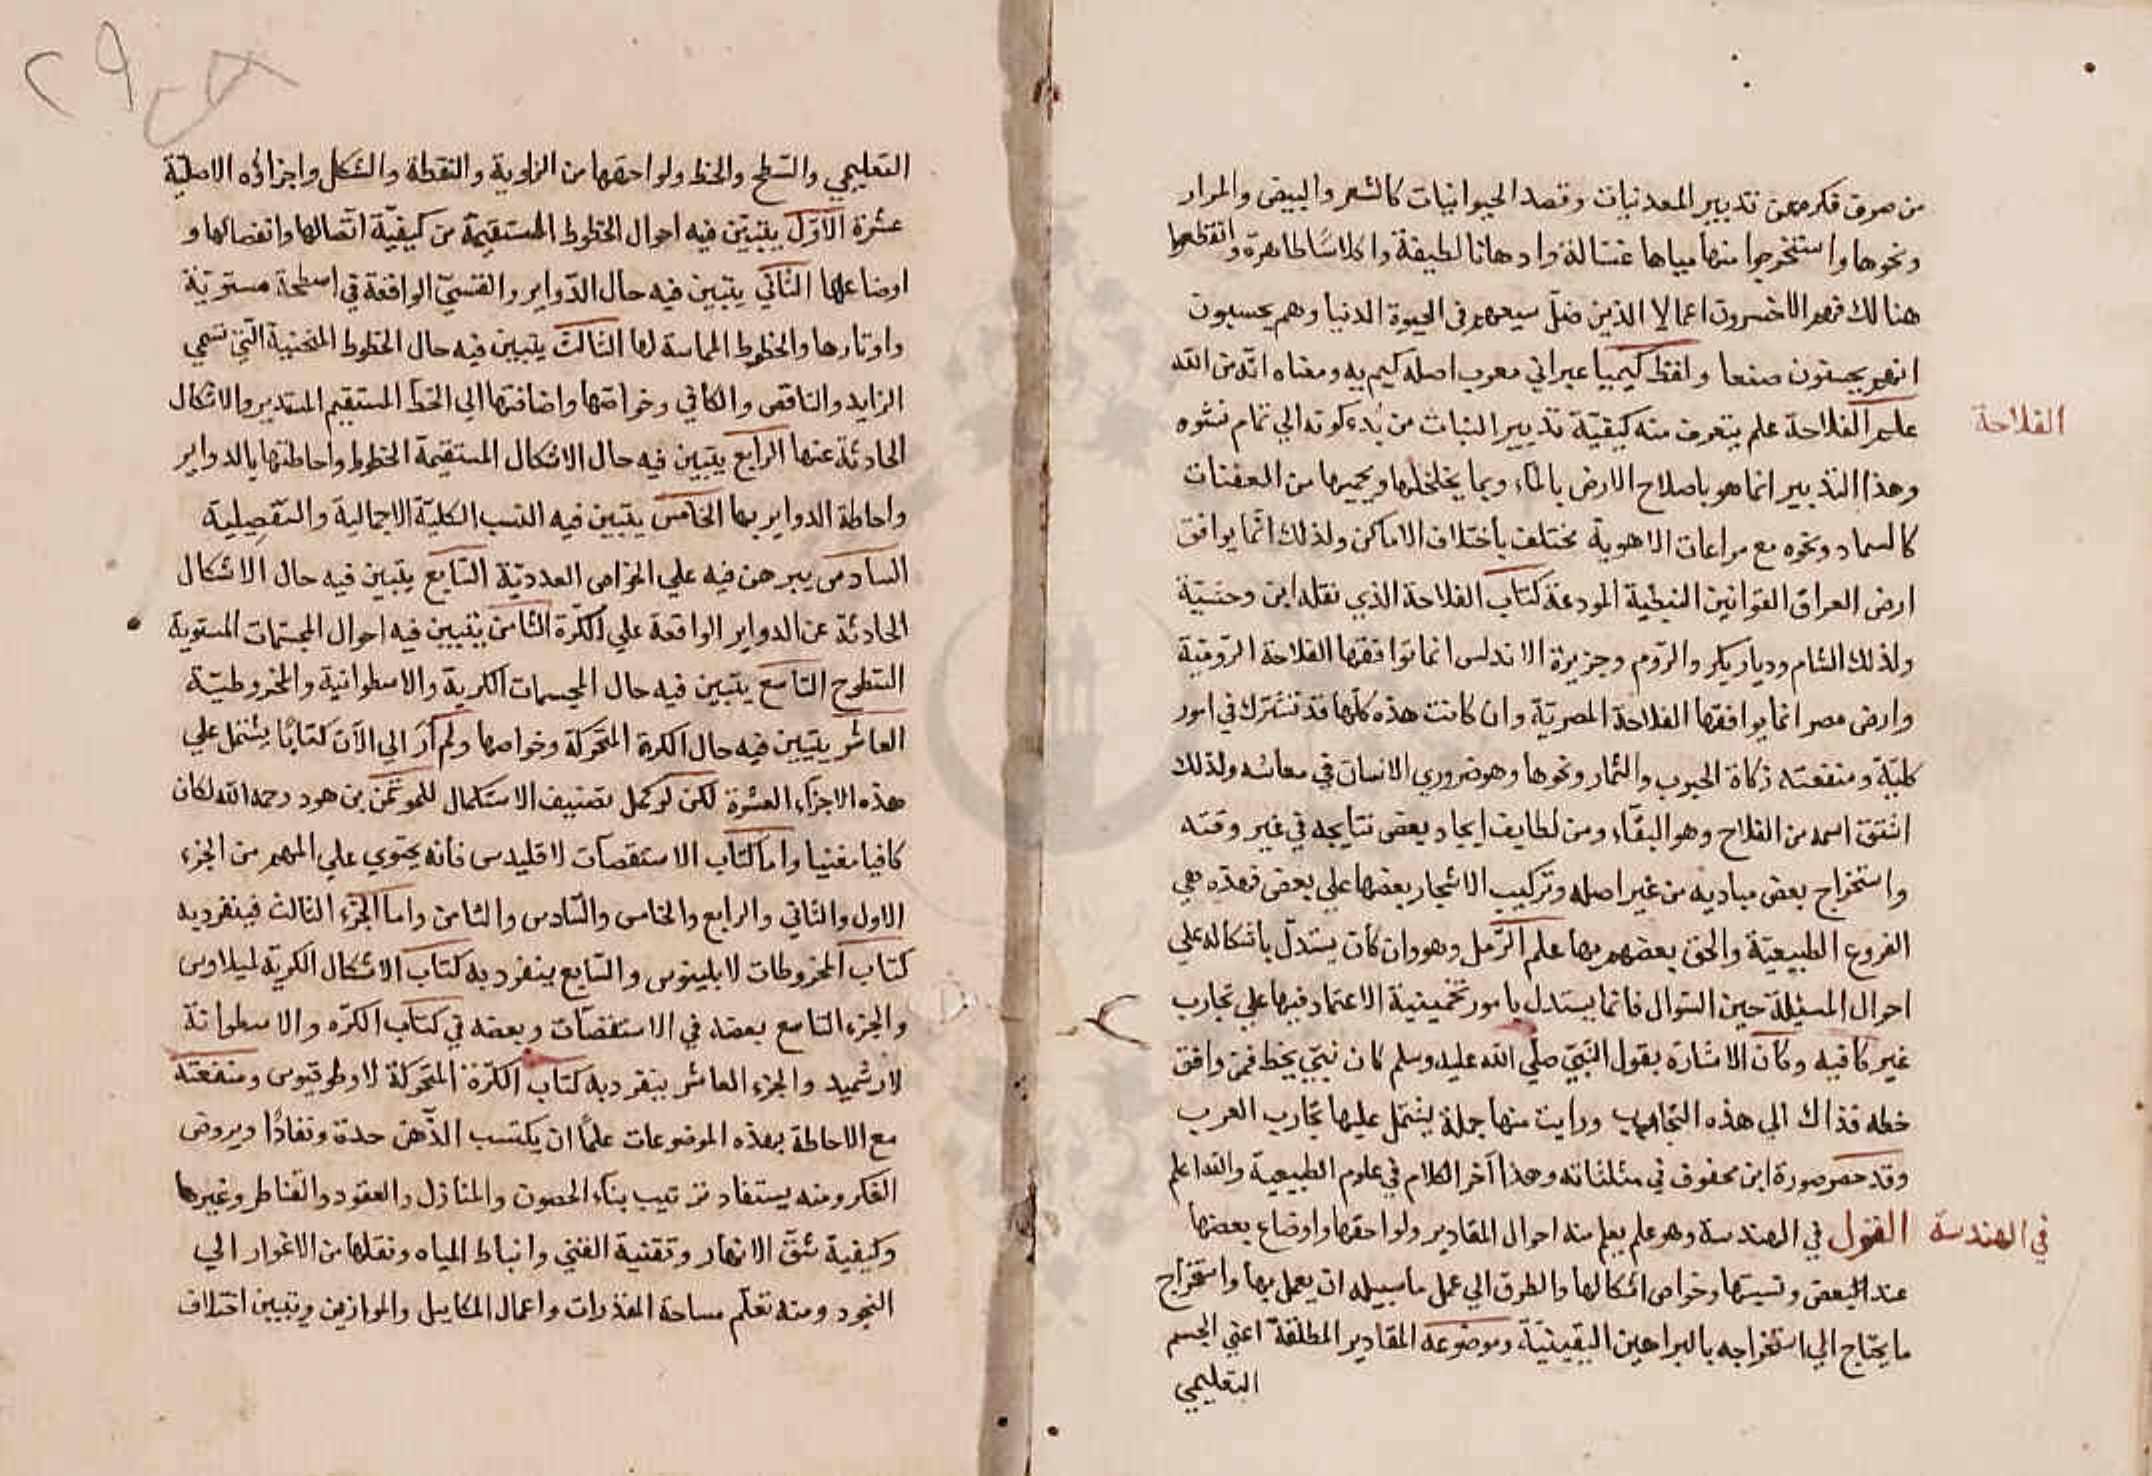 من صرف فكره عن تدبير المعدنيات وقصد الحيوانيات كالشعر والبيض والمرار
ونحوها واستخرجوا منها مياها غسالة وادهانا لطيفة واكلاسًا طاهرة وانقطعوا
هنالك فهم الاخسرون اعمالا الذين ضلّ سيعهم في الحيوة الدنيا وهم يحسبون
انهم يحسنون صنعا ولفظ كيميا عبراني معرب اصله كيم يه ومعناه انّه من الله
الفلاحة
علم الفلاحة علم يتعرف منه كيفيّة تدبير النبات من بُدء كونه الي تمام نشوه
وهذا التدبير انما هو باصلاح الارض بالمآء وبما يخلخلها ويحميها من العفنات
كالسماد ونحوه مع مراعات الاهوية مختلف بأختلاف الاماكن ولذلك انّما يوافق
ارض العراق القوانين النبطية المودعة كتاب الفلاحة الذي نقله ابن وحشيّة
ولذلك الشام وديار بكر والرّوم وجزيرة الاندلس انما توافقها الفلاحة الرّوميّة
وارض مصر انما يوافقها الفلاحة المصريّة وان كانت هذه كلّها قد تشترك في امور
كليّة ومنفعته زكاة الحبوب والثمار ونحوها وهو ضروري الانسان في معاشه ولذلك
اشتق اسمه من الفلاح وهو البقآء ومن لطايف ايجاد بعض نتايجه في غير وقته
واستخراج بعض مباديه من غير اصله وتركيب الاشجار بعضها علي بعض فهذه هي
الفروع الطبيعيّة والحق بعضهم بها علم الرّمل وهو وان كان يستدلّ باشكاله علي
احوال المسئلة حين السّوال فانما يستدل بامور تخمينية الاعتماد فيها علي تجارب
غير كافيه وكأن الاشارة بقول النّبيّ صلّي الله عليه وسلم كان نبيّ يخط فمن وافق
خطه فذاك الي هذه التجارب ورايت منها جملة يشتمل عليها تجارب العرب
وقد حصر صورة ابن محفوف في مثلثاته وهذا آخر الكلام في علوم الطبيعية والله اعلم
في الهندسة
القول في الهندسة وهو علم يعلم منه احوال المقادير ولواحقها واوضاع بعضها
عند البعض ونسبتها وخواص اشكالها والطرق الي عمل ما سبيله ان يعمل بها واستخراج
ما يحتاج الي استخراجه بالبراهين اليقينيّة وموضوعه المقادير المطلقة اعني الجسم
التعليمي
٢٩
التعليمي والسّطح والخط ولواحقها من الزاوية والنقطة والشكل واجزاؤه الاصليّة
عشرة الاوّل يتبيّن فيه احوال الخطوط المستقيمة من كيفيّة اتّصالها وانفصالها و
اوضاعها الثّاني يتبين فيه حال الدّواير والقسيّ الواقعة في اسطحة مستويّة
واوتارها والخطوط المماسة لها الثالث يتبين فيه حال الخطوط المنحنية التّي تسمي
الزايد والناقص والكافي وخواصّها واضافتها الي الخط المستقيم المستدير والاشكال
الحادثة عنها الرابع يتبين فيه حال الاشكال المستقيمة الخطوط واحاطتها بالدواير
واحاطة الدواير بها الخامس يتبين فيه النسب الكليّة الاجمالية والتّفصيلية
السادس يبرهن فيه علي الخواص العدديّة السّابع يتبين فيه حال الاشكال
الحادثة عن الدواير الواقعة علي الكرّة الثامن يتبين فيه احوال المجسّمات المستوية
السّطوح التاسع يتبين فيه حال المجسمات الكرية والاسطوانية والمخروطيّة
العاشر يتبين فيه حال الكرة المتحركة وخواصها ولم أرَ الي الآن كتابًا يشتمل علي
هذه الاجزاء العشرة لكن لو كمل تصنيف الاستكمال للموتمن بن هود رحمه الله لكان
كافيا مغنيا واما كتاب الاستقصآت لاقليدس فأنه يحتوي علي المهم من الجزء
الاول والثاني والرابع والخامس والسّادس والثامن واما الجزء الثالث فينفرد به
كتاب المخروطات لابلينوس والسّابع ينفرد به كتاب الاشكال الكريّة لميلاوس
والجزء التاسع بعضه في الاستقصّات وبعضه في كتاب الكرّه والاسطوانة
لارشميد والجزء العاشر ينفرد به كتاب الكرّة المتحركة لاوطوقيوس ومنفعته
مع الاحاطة بهذه الموضوعات علمًا ان يكتسب الذّهن حدة ونفاذًا ويروض
الفكر ومنه يستفاد ترتيب بنآء الحصون والمنازل والعقود والقناطر وغيرها
وكيفية شقّ الانهار وتقنية القني وانباط المياه ونقلها من الاغوار الي
النجود ومنه تعلّم مساحة المقدرات واعمال المكاييل والموازين ويتبيين اختلاف